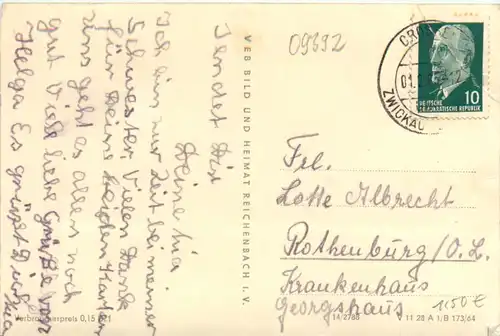 09392
CRO
01.
ZWICKAU
10
DEUTSCHE
DEMOKRATISCHE REPUBLIK
Sendet Dir
Deine
Ich bin zur Zeit bei meiner
Schwester. Vielen Dank
für Deine beiden Karten
uns geht es allen noch
gut Viele liebe Grüße von
Helga Es grüßt Dich
VEB BILD UND HEIMAT REICHENBACH I. V.
Frl.
Lotte Albrecht
Rothenburg/O.L.
Krankenhaus
Georgshaus
1,50€
Verbraucherpreis 0,15
14/2788
V 11 28 A 1/B 173/64